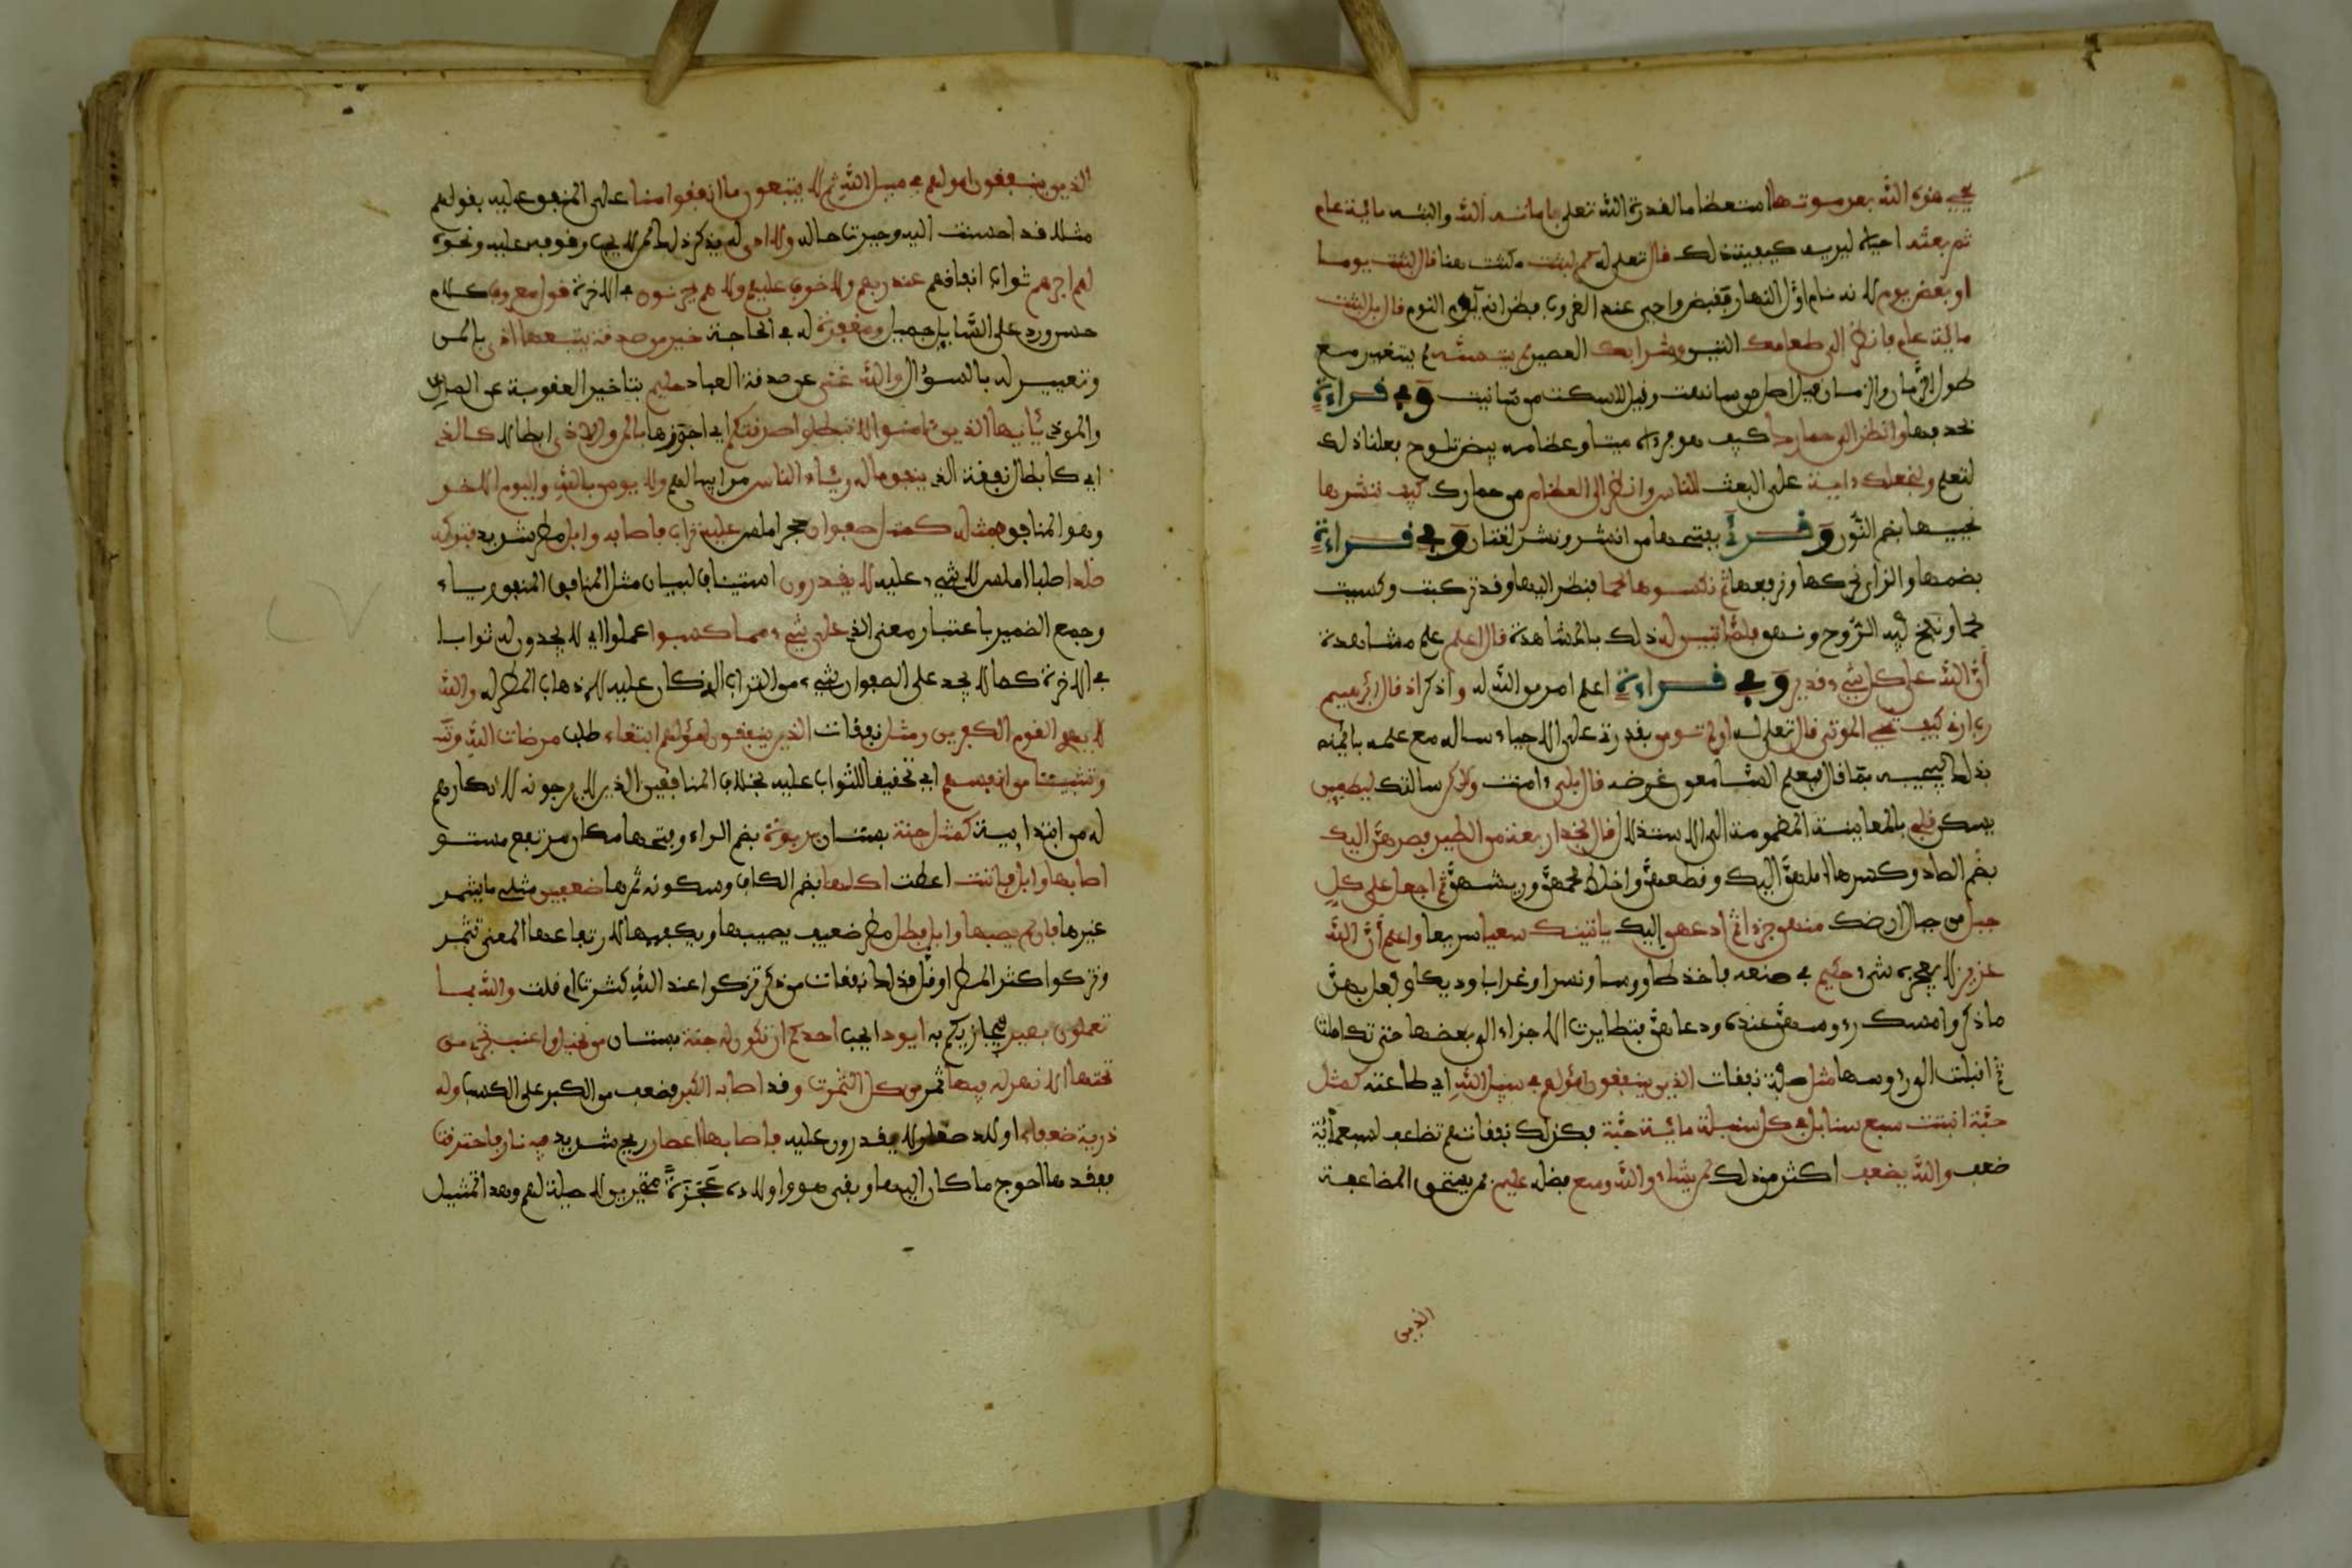 يحيي هذه الله بعد موتها استعظاما لقدرة الله تعلى فاماته الله والبثه ماية عام
ثم بعثه احياه ليريه كيفية ذلك قال تعلى له كم لبثت مكثت هنا قال لبثت يوما
او بعض يوم لانه نام اول النهار فقبض واحيي عند الغروب فظن انه يوم النوم قال بل لبثت
ماية عام فانظر الى طعامك التين وشرابك العصير لم يتسنه لم يتغير مع
طول الزمان والهاء قيل اصل من سانهت وقيل للسكت من سانيت وفي قراءة
بحذفها وانظر الى حمارك كيف هو فرءاه ميتا وعظامه بيض تلوح فعلنا ذلك
لتعلم ولنجعلك ءاية على البعث للناس وانظر الى العظام من حمارك كيف ننشرها
نحييها بضم النون وقرئ بفتحها من انشر ونشر لغتان وفي قراءة
بضمها والزاي نحركها ونرفعها ثم نكسوها لحما فنظر اليها وقد تركبت وكسيت
لحما ونفخ فيه الروح ونهق فلما تبين له ذلك بالمشاهدة قال اعلم علم مشاهدة
أن الله على كل شيء قدير وفي قراءة اعلم امر من الله له واذكر اذ قال ابرهيم
رب ارني كيف تحي الموتى قال تعلى له اولم تومن بقدرتي على الاحياء ساله مع علمه بايمانه
بذلك ليجيبه بما قال فيعلم السامعون غرضه قال بلى ءامنت ولكن سالتك ليطمين
يسكن قلبي بالمعاينة المضمومة الى الاستدلال قال فخذ اربعة من الطير فصرهن اليك
بضم الصاد وكسرها املهن اليك وقطعهن واخلط لحمهن وريشهن ثم اجعل على كل
جبل من جبال ارضك منهن جزءا ثم ادعهن إليك ياتينك سعيا سريعا واعلم أن الله
عزيز لا يعجزه شيء حكيم في صنعه فاخذ طاووسا ونسرا وغرابا وديكا وفعل بهن
ما ذكر وامسك رءوسهن عنده ودعاهن فتطايرت الاجزاء الى بعضها حتى تكاملت
ثم اقبلت الى رءوسها مثل صفة نفقات الذين ينفقون امولهم في سبيل الله اي طاعته كمثل
حبة انبتت سبع سنابل في كل سنبلة ماية حبة فكذلك نفقاتهم تضاعف لسبعماية
ضعف والله يضعف اكثر من ذلك لمن يشاء والله وسع فضله عليم بمن يستحق المضاعفة
الذين
الذين ينفقون امولهم في سبيل الله ثم لا يتبعون ما انفقوا منا على المنفق عليه بقولهم
مثلا قد احسنت اليه وجبرت حاله ولا اذى له بذكر ذلك الى من لا يحب وقوفه عليه ونحوه
لهم اجرهم ثواب انفاقهم عند ربهم ولا خوف عليهم ولا هم يحزنون في الاخرة قول معروف كلام
حسن ورد على السايل جميل ومغفرة له في الحاجة خير من صدقة يتبعها اذى بالمن
وتعيير له بالسؤال والله غني عن صدقة العباد حليم بتاخير العقوبة عن المان
والموذي يأيها الذين ءامنوا لا تبطلوا صدقتكم اي اجورها بالمن والاذى ابطالا كالذي
اي كابطال نفقة الذي ينفق ماله رئاء الناس مراييا لهم ولا يومن بالله واليوم الاخر
وهو المنافق فمثله كمثل صفوان حجر املس عليه تراب فاصابه وابل مطر شديد فتركه
صلدا صلبا املس لا شيء عليه لا يقدرون استيناف لبيان مثل المنافق المنفق رياء
وجمع الضمير باعتبار معنى الذي على شيء مما كسبوا عملوا اي لا يجدون له ثوابا
في الاخرة كما لا يوجد على الصفوان شيء من التراب الذي كان عليه لاذهاب المطر له والله
لا يهدي القوم الكفرين ومثل نفقات الذين ينفقون امولهم ابتغاء طلب مرضات الله
وتثبيتا من انفسهم اي تحقيقا للثواب عليه بخلاف المنافقين الذين لا يرجونه لانكارهم
له من ابتدايية كمثل جنة بستان بربوة بضم الراء وفتحها مكان مرتفع مستو
اصابها وابل فئاتت اعطت اكلها بضم الكاف وسكونه ثمرها ضعفين مثلي ما يثمر
غيرها فان لم يصبها وابل فطل مطر ضعيف يصيبها ويكفيها لارتفاعها المعنى تثمر
وتزكوا كثر المطر او قل فكذلك نفقات من ذكر تزكوا عند الله كثرت ام قلت والله بما
تعملون بصير فيجازيكم به ايود ايحب احدكم ان تكون له جنة بستان من نخيل واعنب تجري من
تحتها الانهر له فيها ثمر من كل الثمرت وقد اصابه الكبر فضعف من الكبر على الكسب وله
ذرية ضعفاء اولاد صغار لا يقدرون عليه فاصابها اعصار ريح شديد فيه نار فاحترقت
ففقدها احوج ما كان اليها وبقي هو واولاده عجزة متحيرين لا حيلة لهم وهذا تمثيل